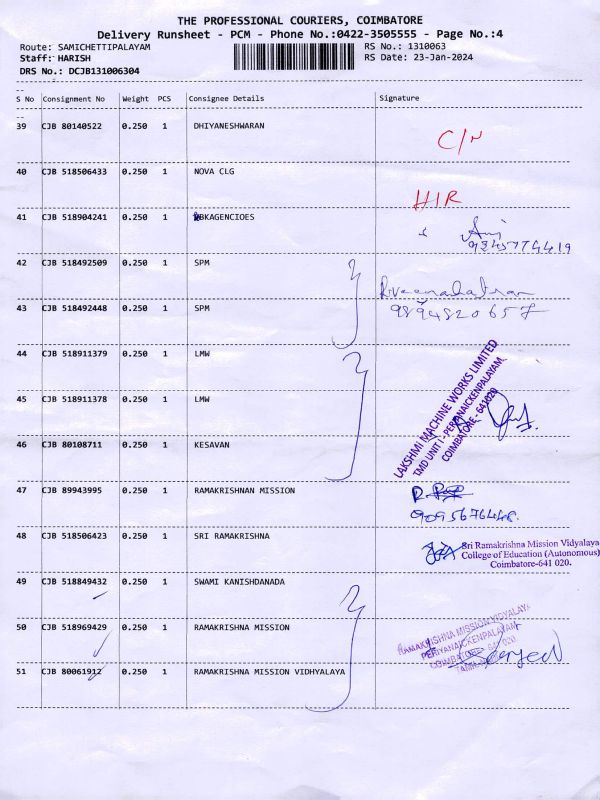 THE PROFESSIONAL COURIERS, COIMBATORE
Delivery Runsheet - PCM - Phone No.:0422-3505555 - Page No.:4
Route: SAMICHETTIPALAYAM RS No.: 1310063
Staff: HARISH RS Date: 23-Jan-2024
DRS No.: DCJB131006304
S No Consignment No Weight PCS Consignee Details Signature
39 CJB 80140522 0.250 1 DHIYANESHWARAN C/N
40 CJB 518506433 0.250 1 NOVA CLG HIR
41 CJB 518904241 0.250 1 BKAGENCIOES
42 CJB 518492509 0.250 1 SPM
43 CJB 518492448 0.250 1 SPM 9894820657
44 CJB 518911379 0.250 1 LMW
45 CJB 518911378 0.250 1 LMW
46 CJB 80108711 0.250 1 KESAVAN
LAKSHMI MACHINE WORKS LIMITED
TMD UNIT I - PERIYANAICKENPALAYAM,
COIMBATORE - 641020
47 CJB 89943995 0.250 1 RAMAKRISHNAN MISSION
48 CJB 518506423 0.250 1 SRI RAMAKRISHNA
Sri Ramakrishna Mission Vidyalaya
College of Education (Autonomous)
Coimbatore-641 020.
49 CJB 518849432 0.250 1 SWAMI KANISHDANADA
50 CJB 518969429 0.250 1 RAMAKRISHNA MISSION
RAMAKRISHNA MISSION VIDYALAYA
PERIYANAICKENPALAYAM
COIMBATORE - 641 020
51 CJB 80061912 0.250 1 RAMAKRISHNA MISSION VIDHYALAYA